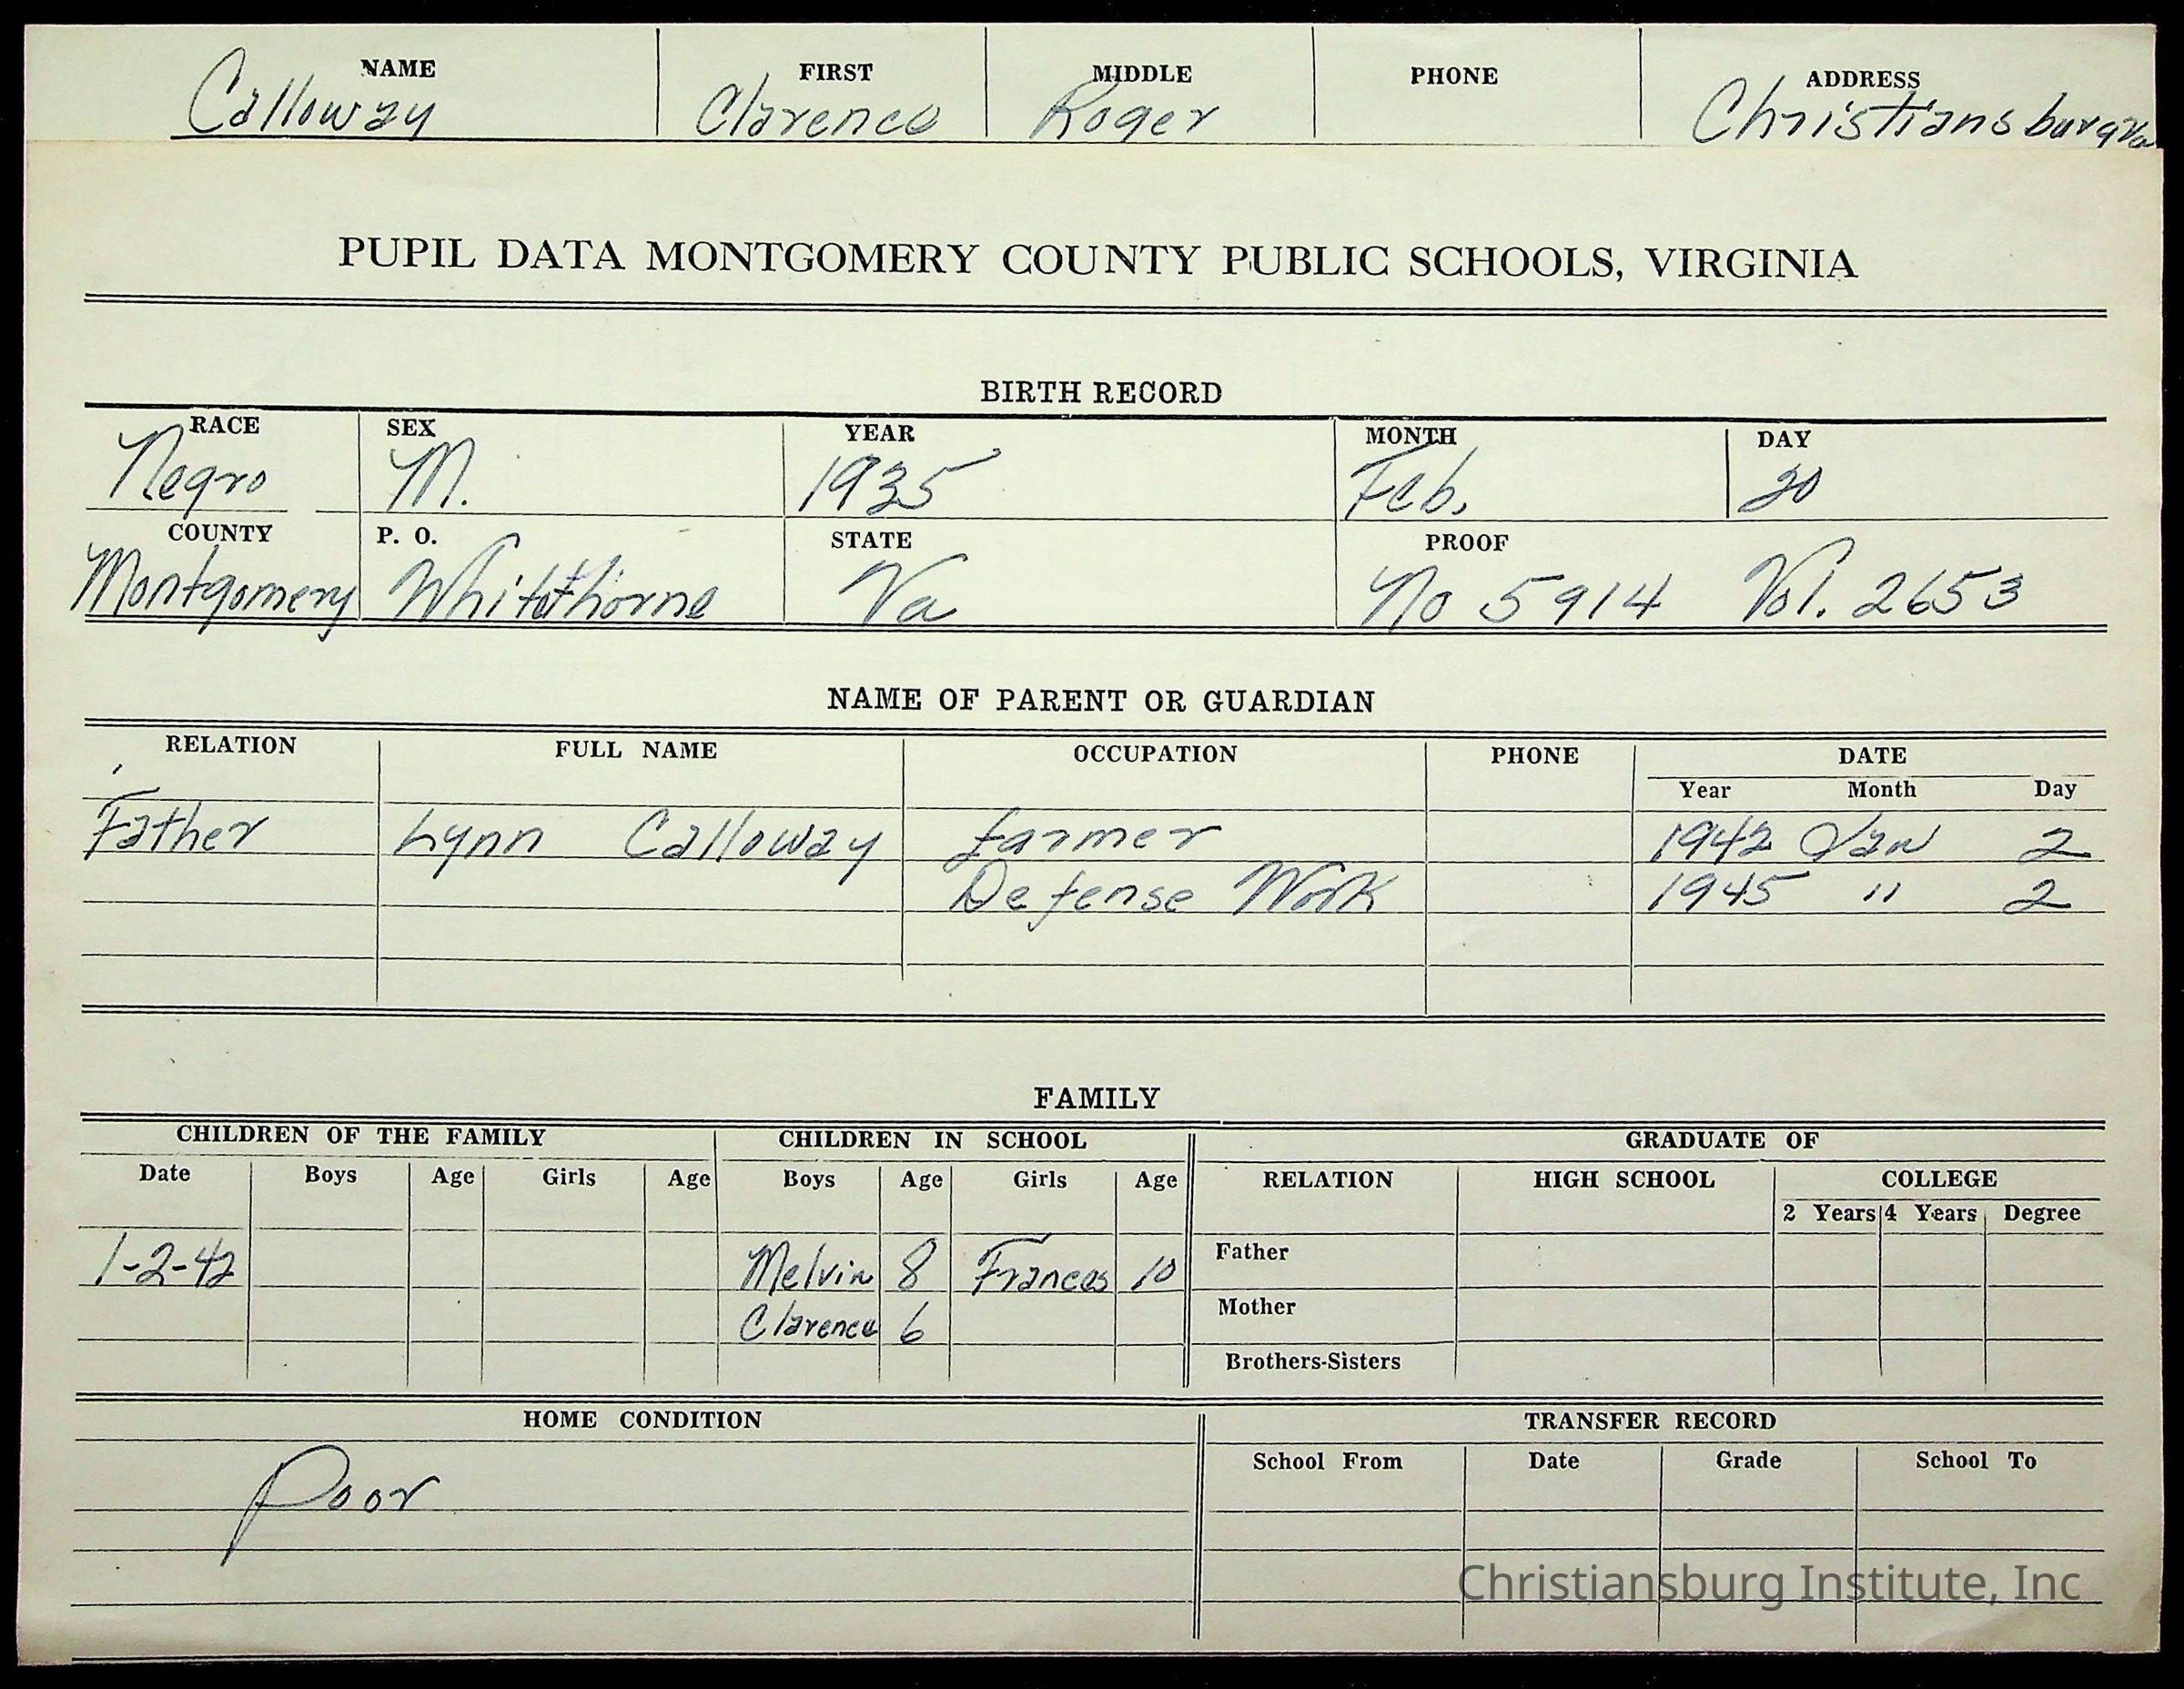 NAME FIRST MIDDLE PHONE ADDRESS
Calloway Clarence Roger Christiansburg Va
PUPIL DATA MONTGOMERY COUNTY PUBLIC SCHOOLS, VIRGINIA
BIRTH RECORD
RACE SEX YEAR MONTH DAY
Negro M. 1935 Feb. 20
COUNTY P. O. STATE PROOF
Montgomery Whitethorne Va No 5914 Vol. 2653
NAME OF PARENT OR GUARDIAN
RELATION FULL NAME OCCUPATION PHONE DATE
Year Month Day
Father Lynn Calloway farmer 1942 Jan 2
Defense Work 1945 " 2
FAMILY
CHILDREN OF THE FAMILY CHILDREN IN SCHOOL GRADUATE OF
Date Boys Age Girls Age Boys Age Girls Age RELATION HIGH SCHOOL COLLEGE
2 Years 4 Years Degree
1-2-42 Melvin 8 Frances 10 Father
Clarence 6 Mother
Brothers-Sisters
HOME CONDITION TRANSFER RECORD
School From Date Grade School To
Poor
Christiansburg Institute, Inc